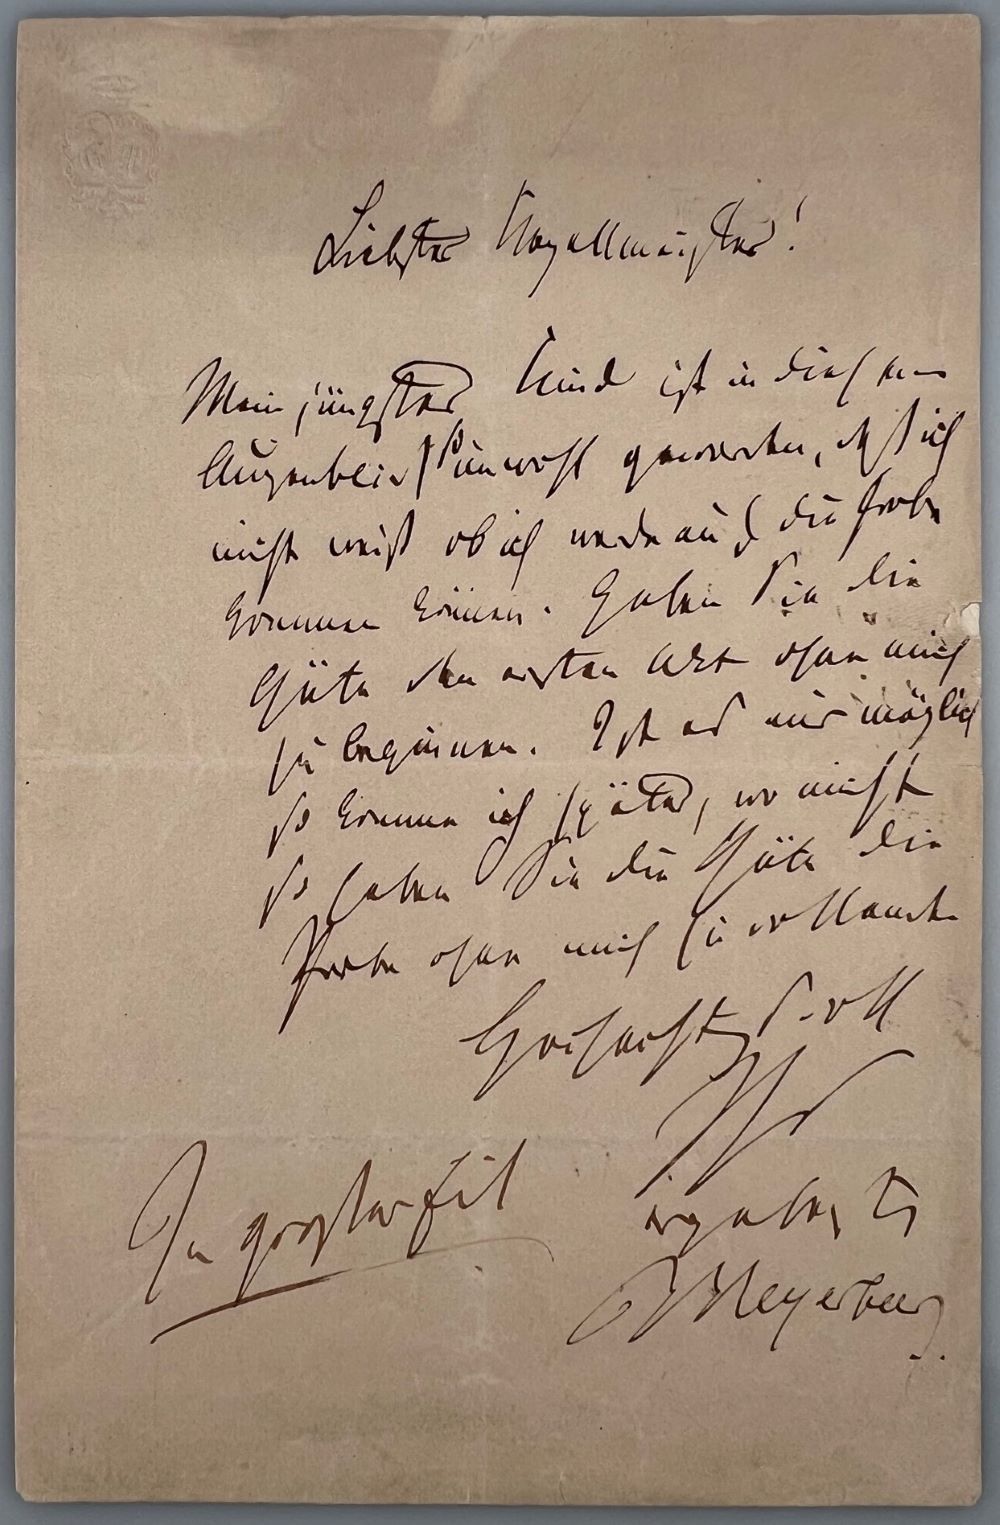 Liebster Kapellmeister!
Mein jüngstes Kind ist in diesem
Augenblick so unwohl geworden, daß ich
nicht weiß ob ich werde auf die Probe
kommen können. Haben Sie die
Güte den ersten Akt ohne mich
zu beginnen. Ist es mir möglich
so komme ich später, wo nicht
so haben Sie die Güte die
Probe ohne mich zu
Hochachtungsvoll
Ihr
ergebenster
Meyerbeer.
In großter Eil